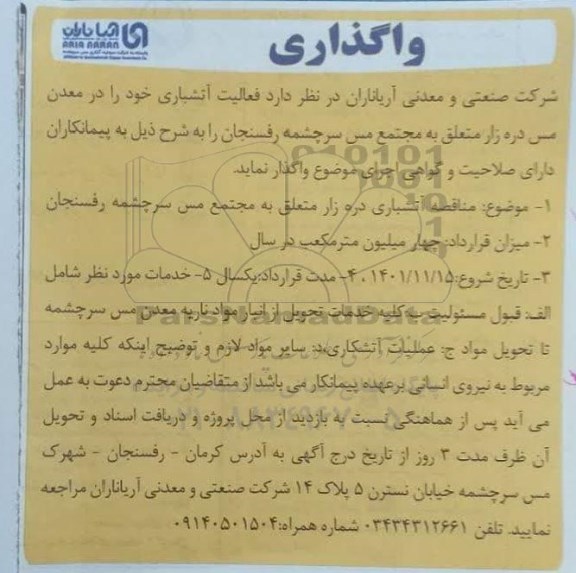 آریا ناران
ARIA NARAN
واگذاری
شرکت صنعتی و معدنی آریاناران در نظر دارد فعالیت آتشباری خود را در معدن
مس دره زار متعلق به مجتمع مس سرچشمه رفسنجان را به شرح ذیل به پیمانکاران
دارای صلاحیت و گواهی اجرای موضوع واگذار نماید.
۱- موضوع: مناقصه آتشباری دره زار متعلق به مجتمع مس سرچشمه رفسنجان
۲- میزان قرارداد: چهار میلیون مترمکعب در سال
۳- تاریخ شروع:۱۴۰۱/۱۱/۱۵ ، ۴- مدت قرارداد:یکسال ۵- خدمات مورد نظر شامل
الف: قبول مسئولیت ب:کلیه خدمات تحویل از انبار مواد ناریه معدن مس سرچشمه
تا تحویل مواد ج: عملیات آتشکاری د: سایر مواد لازم و توضیح اینکه کلیه موارد
مربوط به نیروی انسانی برعهده پیمانکار می باشد از متقاضیان محترم دعوت به عمل
می آید پس از هماهنگی نسبت به بازدید از محل پروژه و دریافت اسناد و تحویل
آن ظرف مدت ۳ روز از تاریخ درج آگهی به آدرس کرمان - رفسنجان - شهرک
مس سرچشمه خیابان نسترن ۵ پلاک ۱۴ شرکت صنعتی و معدنی آریاناران مراجعه
نمایید. تلفن ۰۳۴۳۴۳۱۲۶۶۱ شماره همراه:۰۹۱۴۰۵۰۱۵۰۴
ParsNamadData